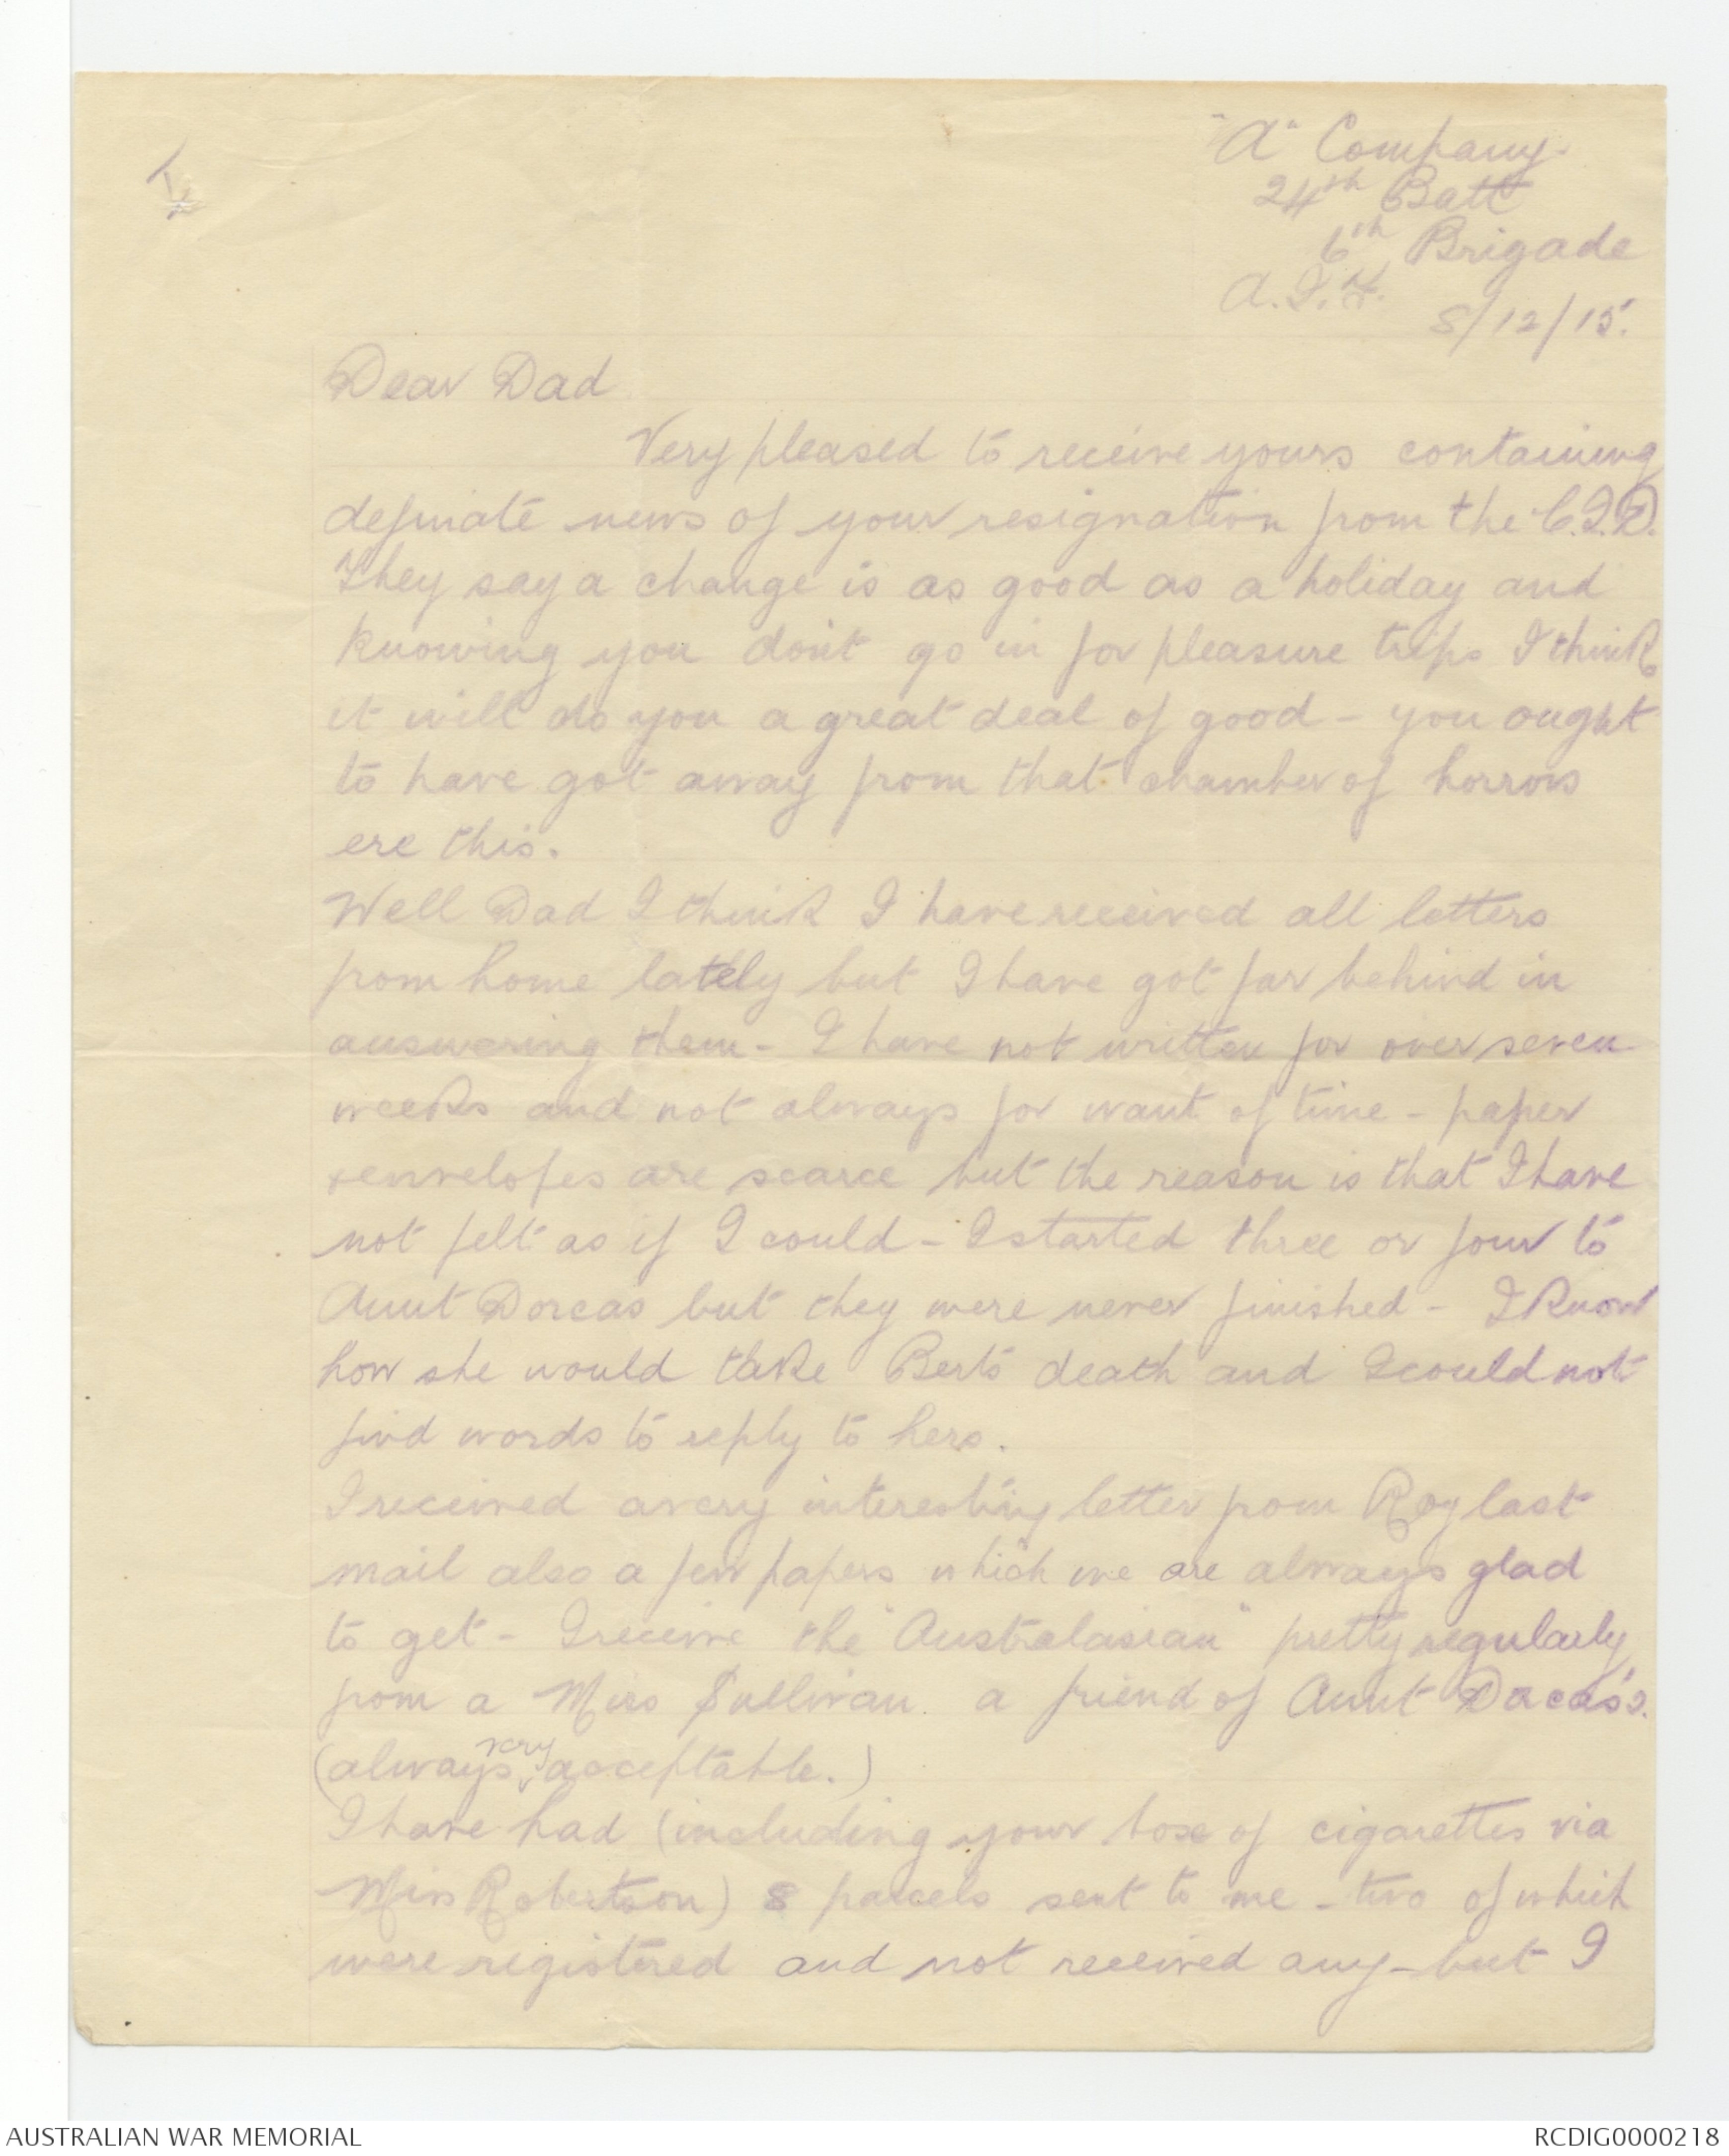 "A" Company
24th Batt
6th Brigade
A.I.F.
8/12/15.
Dear Dad
Very pleased to receive yours containing
definate news of your resignation from the C.I.D.
They say a change is as good as a holiday and
knowing you don't go in for pleasure trips I think
it will do you a great deal of good - you ought
to have got away from that chamber of horrors
ere this.
Well Dad I think I have received all letters
from home lately but I have got far behind in
answering them - I have not written for over seven
weeks and not always for want of time - paper
& envelopes are scarce but the reason is that I have
not felt as if I could - I started three or four to
Aunt Dorcas but they were never finished - I know
how she would take Berts death and I could not
find words to reply to hers.
I received a very interesting letter from Roy last
mail also a few papers which we are always glad
to get - I receive the "Australasian" pretty regularly
from a Miss Sullivan. a friend of Aunt Dorcas's.
(always very acceptable.)
I have had (including your box of cigarettes via
Miss Robertson) 8 parcels sent to me - two of which
were registered and not received any - but I
AUSTRALIAN WAR MEMORIAL
RCDIG0000218